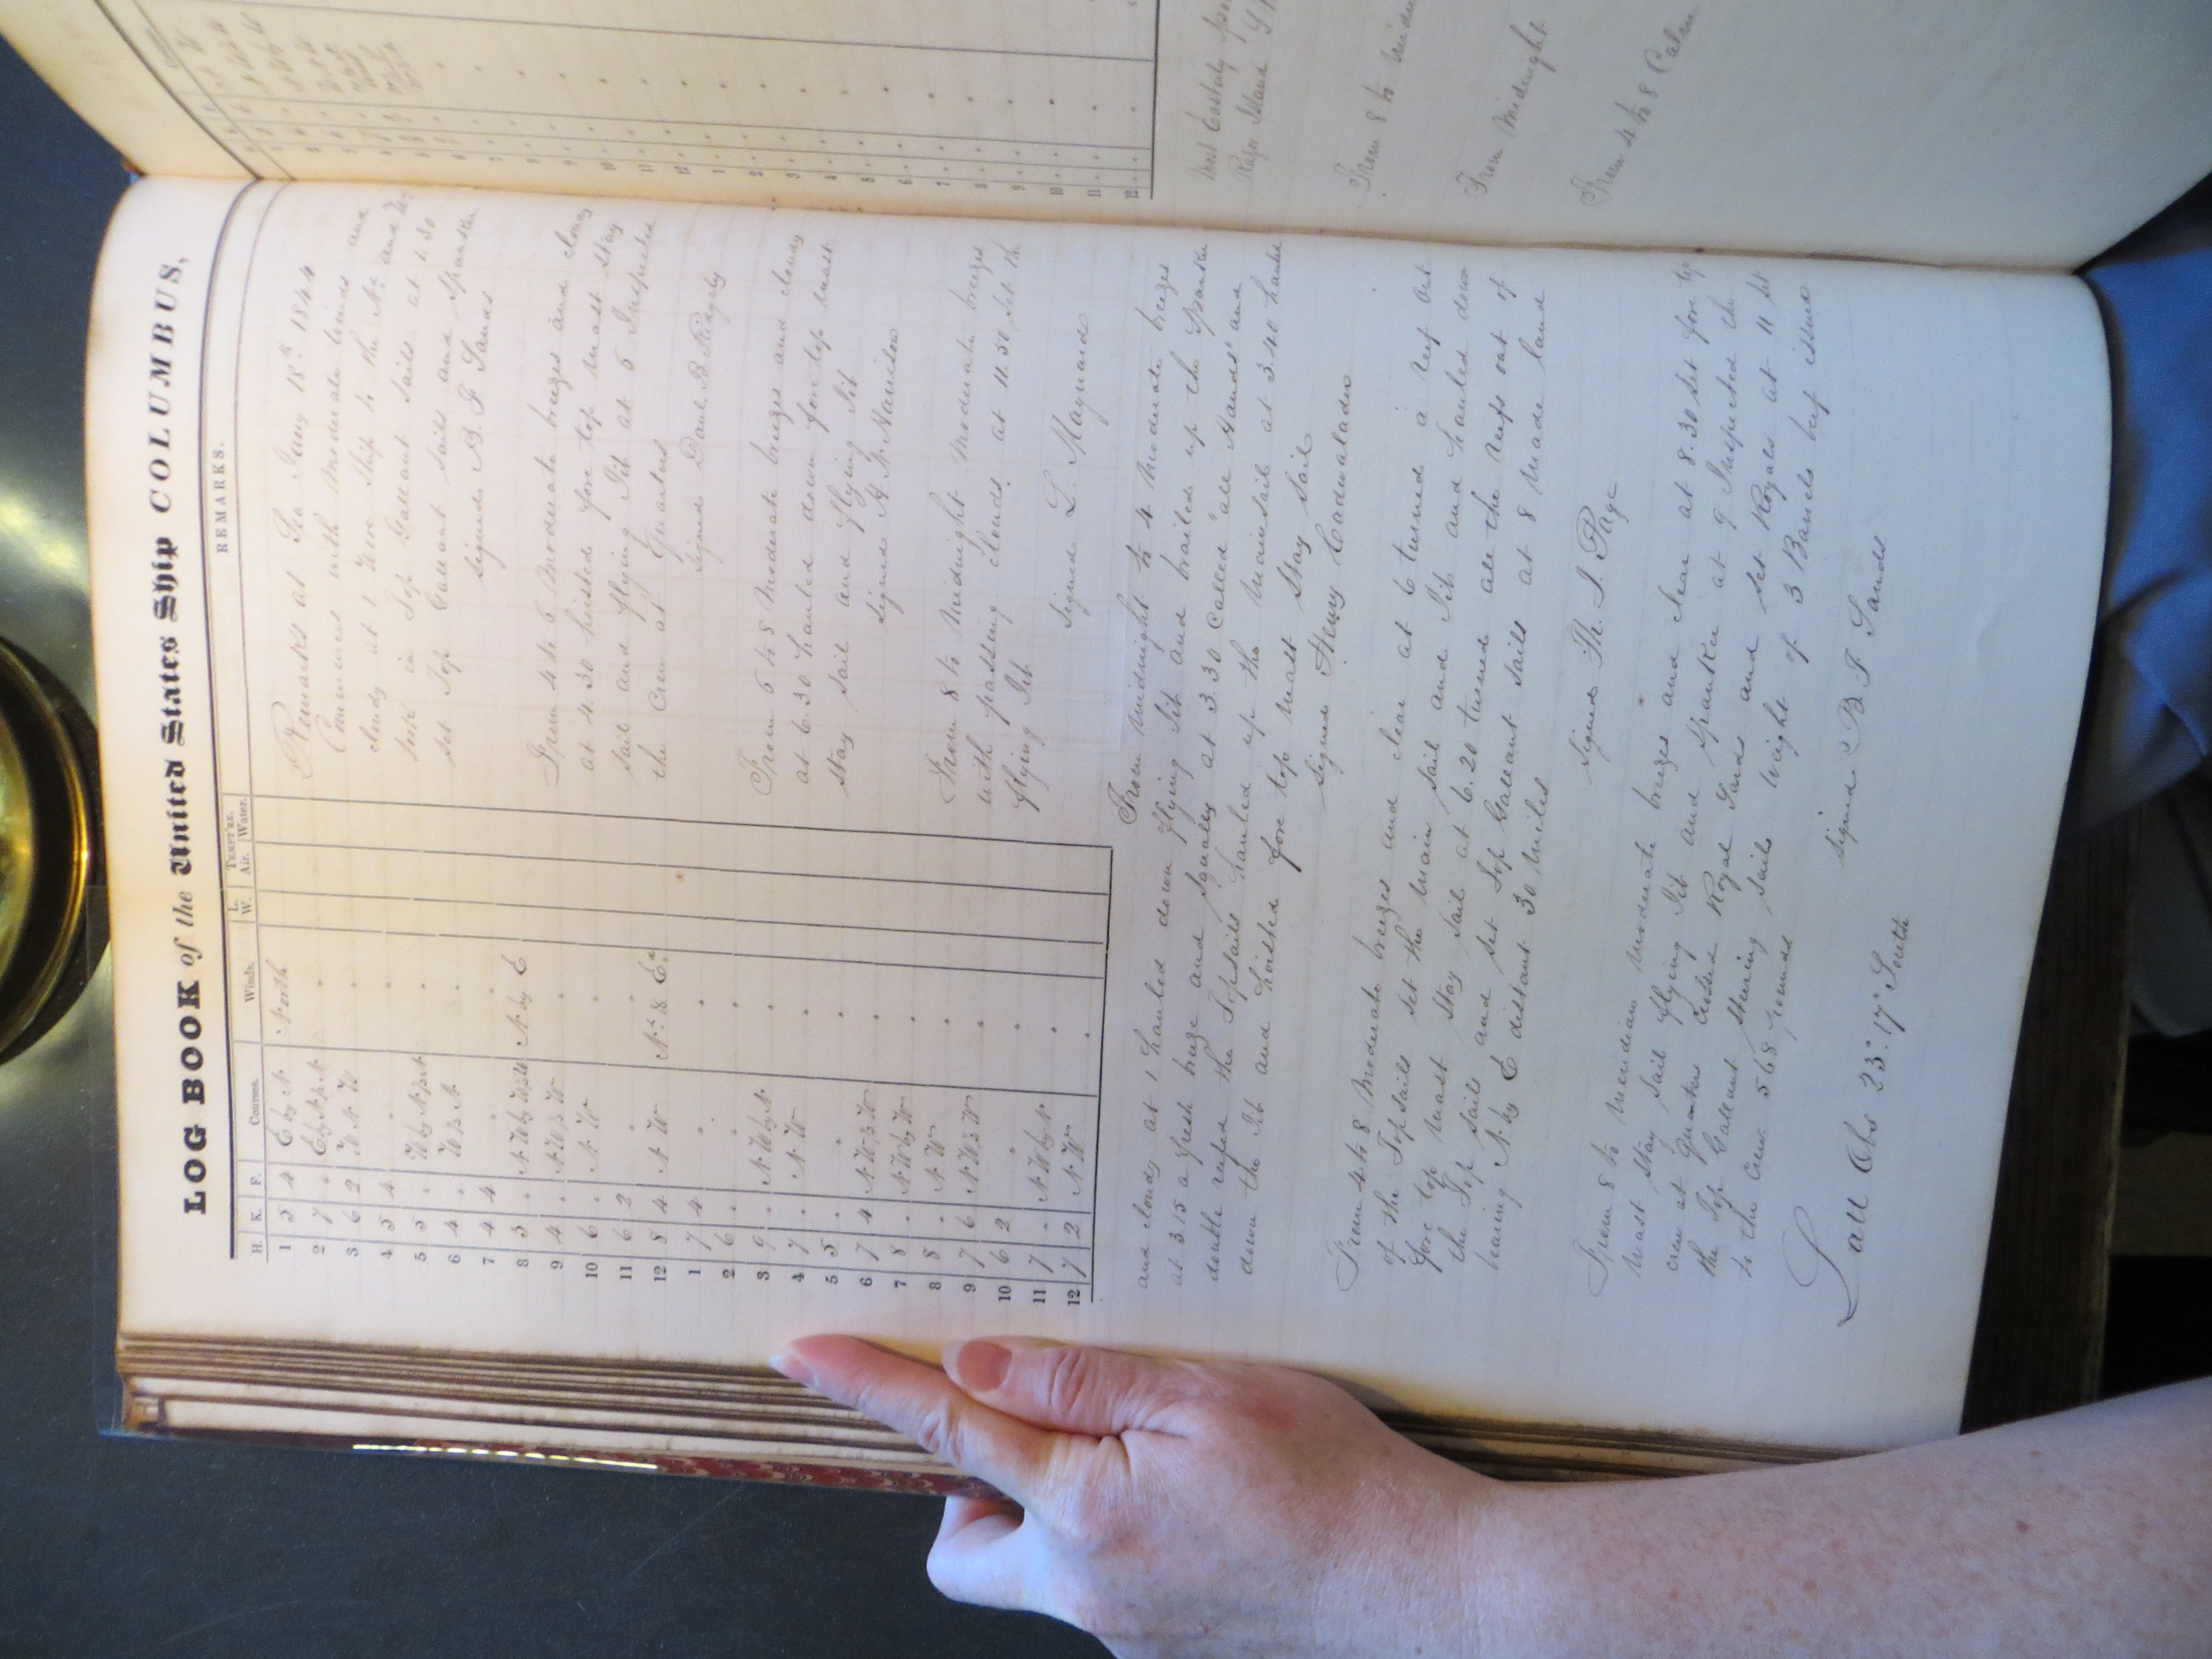 LOG BOOK of the United States Ship COLUMBUS,
H. K. F. Courses. Winds. L. W. TEMPT'RE. Air. Water. REMARKS.
1 5 4 E by N North
2 7 . .
3 6 2 W N W .
4 5 4 . .
5 5 . .
6 4 . .
7 4 4 . .
8 5 . N by E
9 4 . .
10 6 . N W .
11 6 2 . .
12 8 4 N W Nd & Ed
1 7 4 . .
2 6 . . .
3 9 . N W by N .
4 7 . N W .
5 5 . . .
6 7 4 .
7 8 . N W by W .
8 8 . N W .
9 7 6 .
10 6 2 . .
11 7 . N W by N .
12 7 2 N W .
Remarks at Sea Jany 18th 1844
Commences with Moderate winds and
cloudy at 1 Wore Ship to the Nd and
took in Top Gallant Sails at 1.30
set Top Gallant Sails and Spanker
signed B. F. Sands
From 4 to 6 Moderate breezes and cloudy
at 4.30 hoisted fore top mast stay
sail and flying Jib at 5 Inspected
the Crew at Quarters
signed Danl B. Ridgely
From 6 to 8 Moderate breezes and cloudy
at 6.30 hauled down fore top mast
stay sail and flying Jib
signed
From 8 to Midnight Moderate breezes
with passing clouds. at 11.50 set the
flying Jib
signed L. Maynard
From Midnight to 4 Moderate breezes
and cloudy at 1 hauled down flying Jib and brailed up the Spanker
at 3.15 a fresh breeze and squally at 3.30 Called "all Hands" and
double reefed the Topsails hauled up the Mainsail at 3.40 hauled
down the Jib and hoisted fore top mast stay sail
signed Henry Cadwalader
From 4 to 8 Moderate breezes and clear at 6 turned a reef out
of the Topsails set the Main sail and Jib and hauled down
fore top mast stay sail at 6.20 turned all the reefs out of
the Top sails and set Top Gallant sails at 8 Made land
bearing N. by E distant 30 Miles
signed Th. J. Page
From 8 to Meridian Moderate breezes and clear at 8.30 set fore top
mast stay sail flying Jib and Spanker at 9 Inspected the
crew at Quarters Crossed Royal Yards and set Royals at 11 set
the Top Gallant steering sails Weight of 3 Barrels beef issued
to the Crew 568 pounds
signed B F Sands
Latt Obs 23°.17" South
Ragos Island
From 8 to
From Midnight
From 4 to 8 Calm